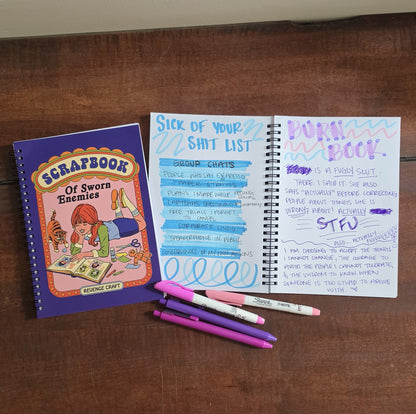 SCRAPBOOK
Of Sworn
Enemies
REVENGE CRAFT
SICK OF YOUR
SHIT LIST
GROUP CHATS
PEOPLE WHO SAY EXPRESSO
PAPER STRAWS
PLANS MADE WHILE
CAPTCHAS
FREE TRIALS I FORGET
TO CANCEL
CORPORATE
SPEAKERPHONE IN PUBLIC
BURN
BOOK
IS A
THERE I SAID IT. SHE ALSO
SAYS "ACTUALLY" BEFORE CORRECTING
PEOPLE ABOUT THINGS SHE IS
WRONG ABOUT! ACTUALLY
STFU
ALSO
I AM DECIDING TO ACCEPT THE THINGS
I CANNOT CHANGE, THE COURAGE TO
AVOID THE PEOPLE I CANNOT TOLERATE,
& THE WISDOM TO KNOW WHEN
SOMEONE IS TOO STUPID TO ARGUE
WITH.
Sharpie